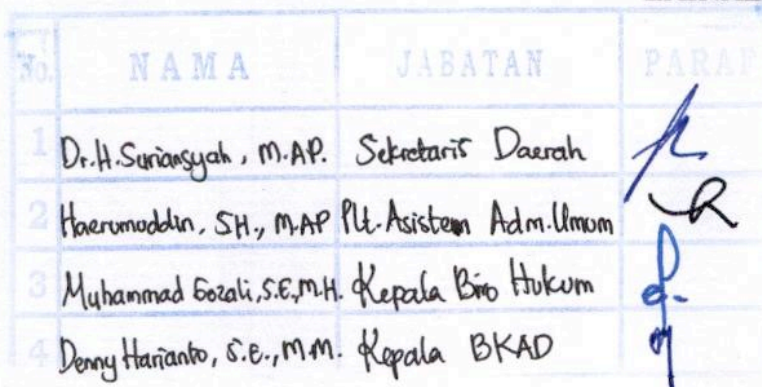 No. NAMA JABATAN PARAF
1 Dr. H. Suriansyah, M.AP. Sekretaris Daerah
2 Haerumuddin, SH., M.AP Plt. Asisten Adm. Umum
3 Muhammad Gozali, S.E, M.H. Kepala Biro Hukum
4 Denny Harianto, S.E., M.M. Kepala BKAD